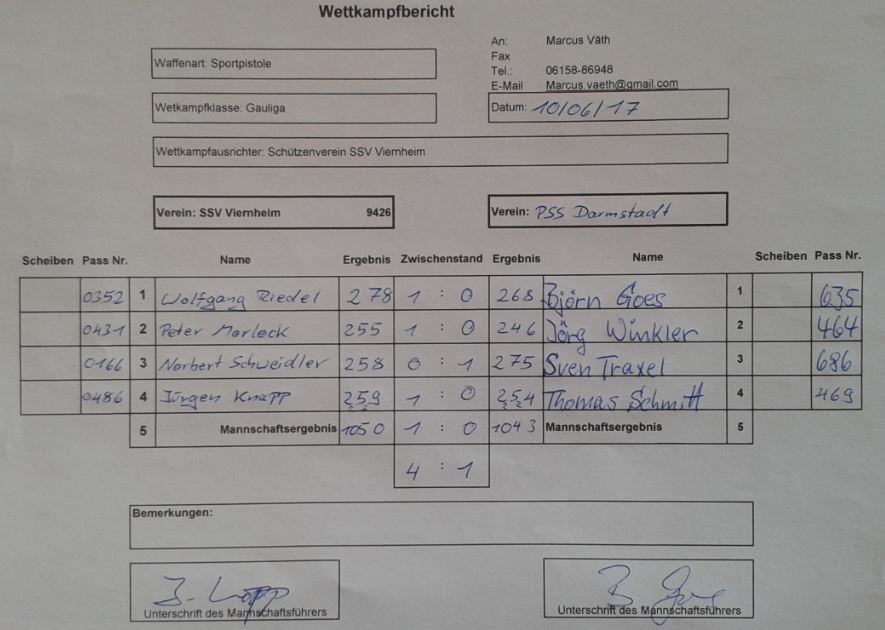 Wettkampfbericht
An: Marcus Väth
Waffenart: Sportpistole
Fax
Tel.: 06158-86948
E-Mail Marcus.vaeth@gmail.com
Wetkampfklasse: Gauliga
Datum: 10/06/17
Wettkampfausrichter: Schützenverein SSV Viernheim
Verein: SSV Viernheim 9426 Verein: PSS Darmstadt
Scheiben Pass Nr. Name Ergebnis Zwischenstand Ergebnis Name Scheiben Pass Nr.
0352 1 Wolfgang Riedel 278 1 : 0 268 Björn Goes 1 635
0431 2 Peter Morleck 255 1 : 0 246 Jörg Winkler 2 464
0166 3 Norbert Schweidler 258 0 : 1 275 Sven Traxel 3 686
0486 4 Jürgen Knapp 259 1 : 0 254 Thomas Schmitt 4 469
5 Mannschaftsergebnis 1050 1 : 0 1043 Mannschaftsergebnis 5
4 : 1
Bemerkungen:
Unterschrift des Mannschaftsführers Unterschrift des Mannschaftsführers